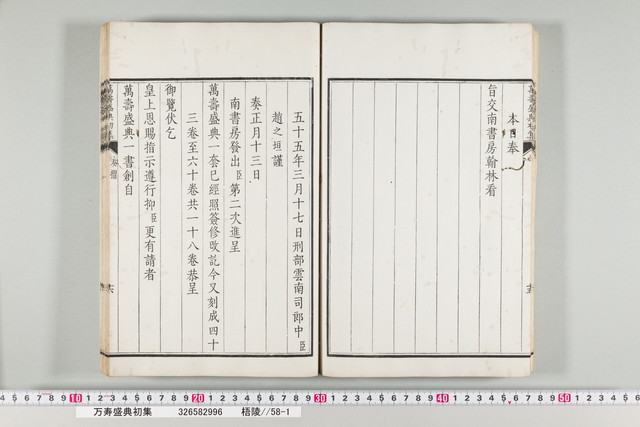 萬壽盛典初集
本日奉
旨交南書房翰林看
五十五年三月十七日刑部雲南司郎中臣
趙之垣謹
奏正月十三日
南書房發出臣第二次進呈
萬壽盛典一套已經照簽修改訖今又刻成四十
三卷至六十卷共一十八卷恭呈
御覽伏乞
皇上恩賜指示遵行抑臣更有請者
萬壽盛典一書創自
萬壽盛典初集
10 20 30 40 50
万寿盛典初集 326582996 梧陵//58-1